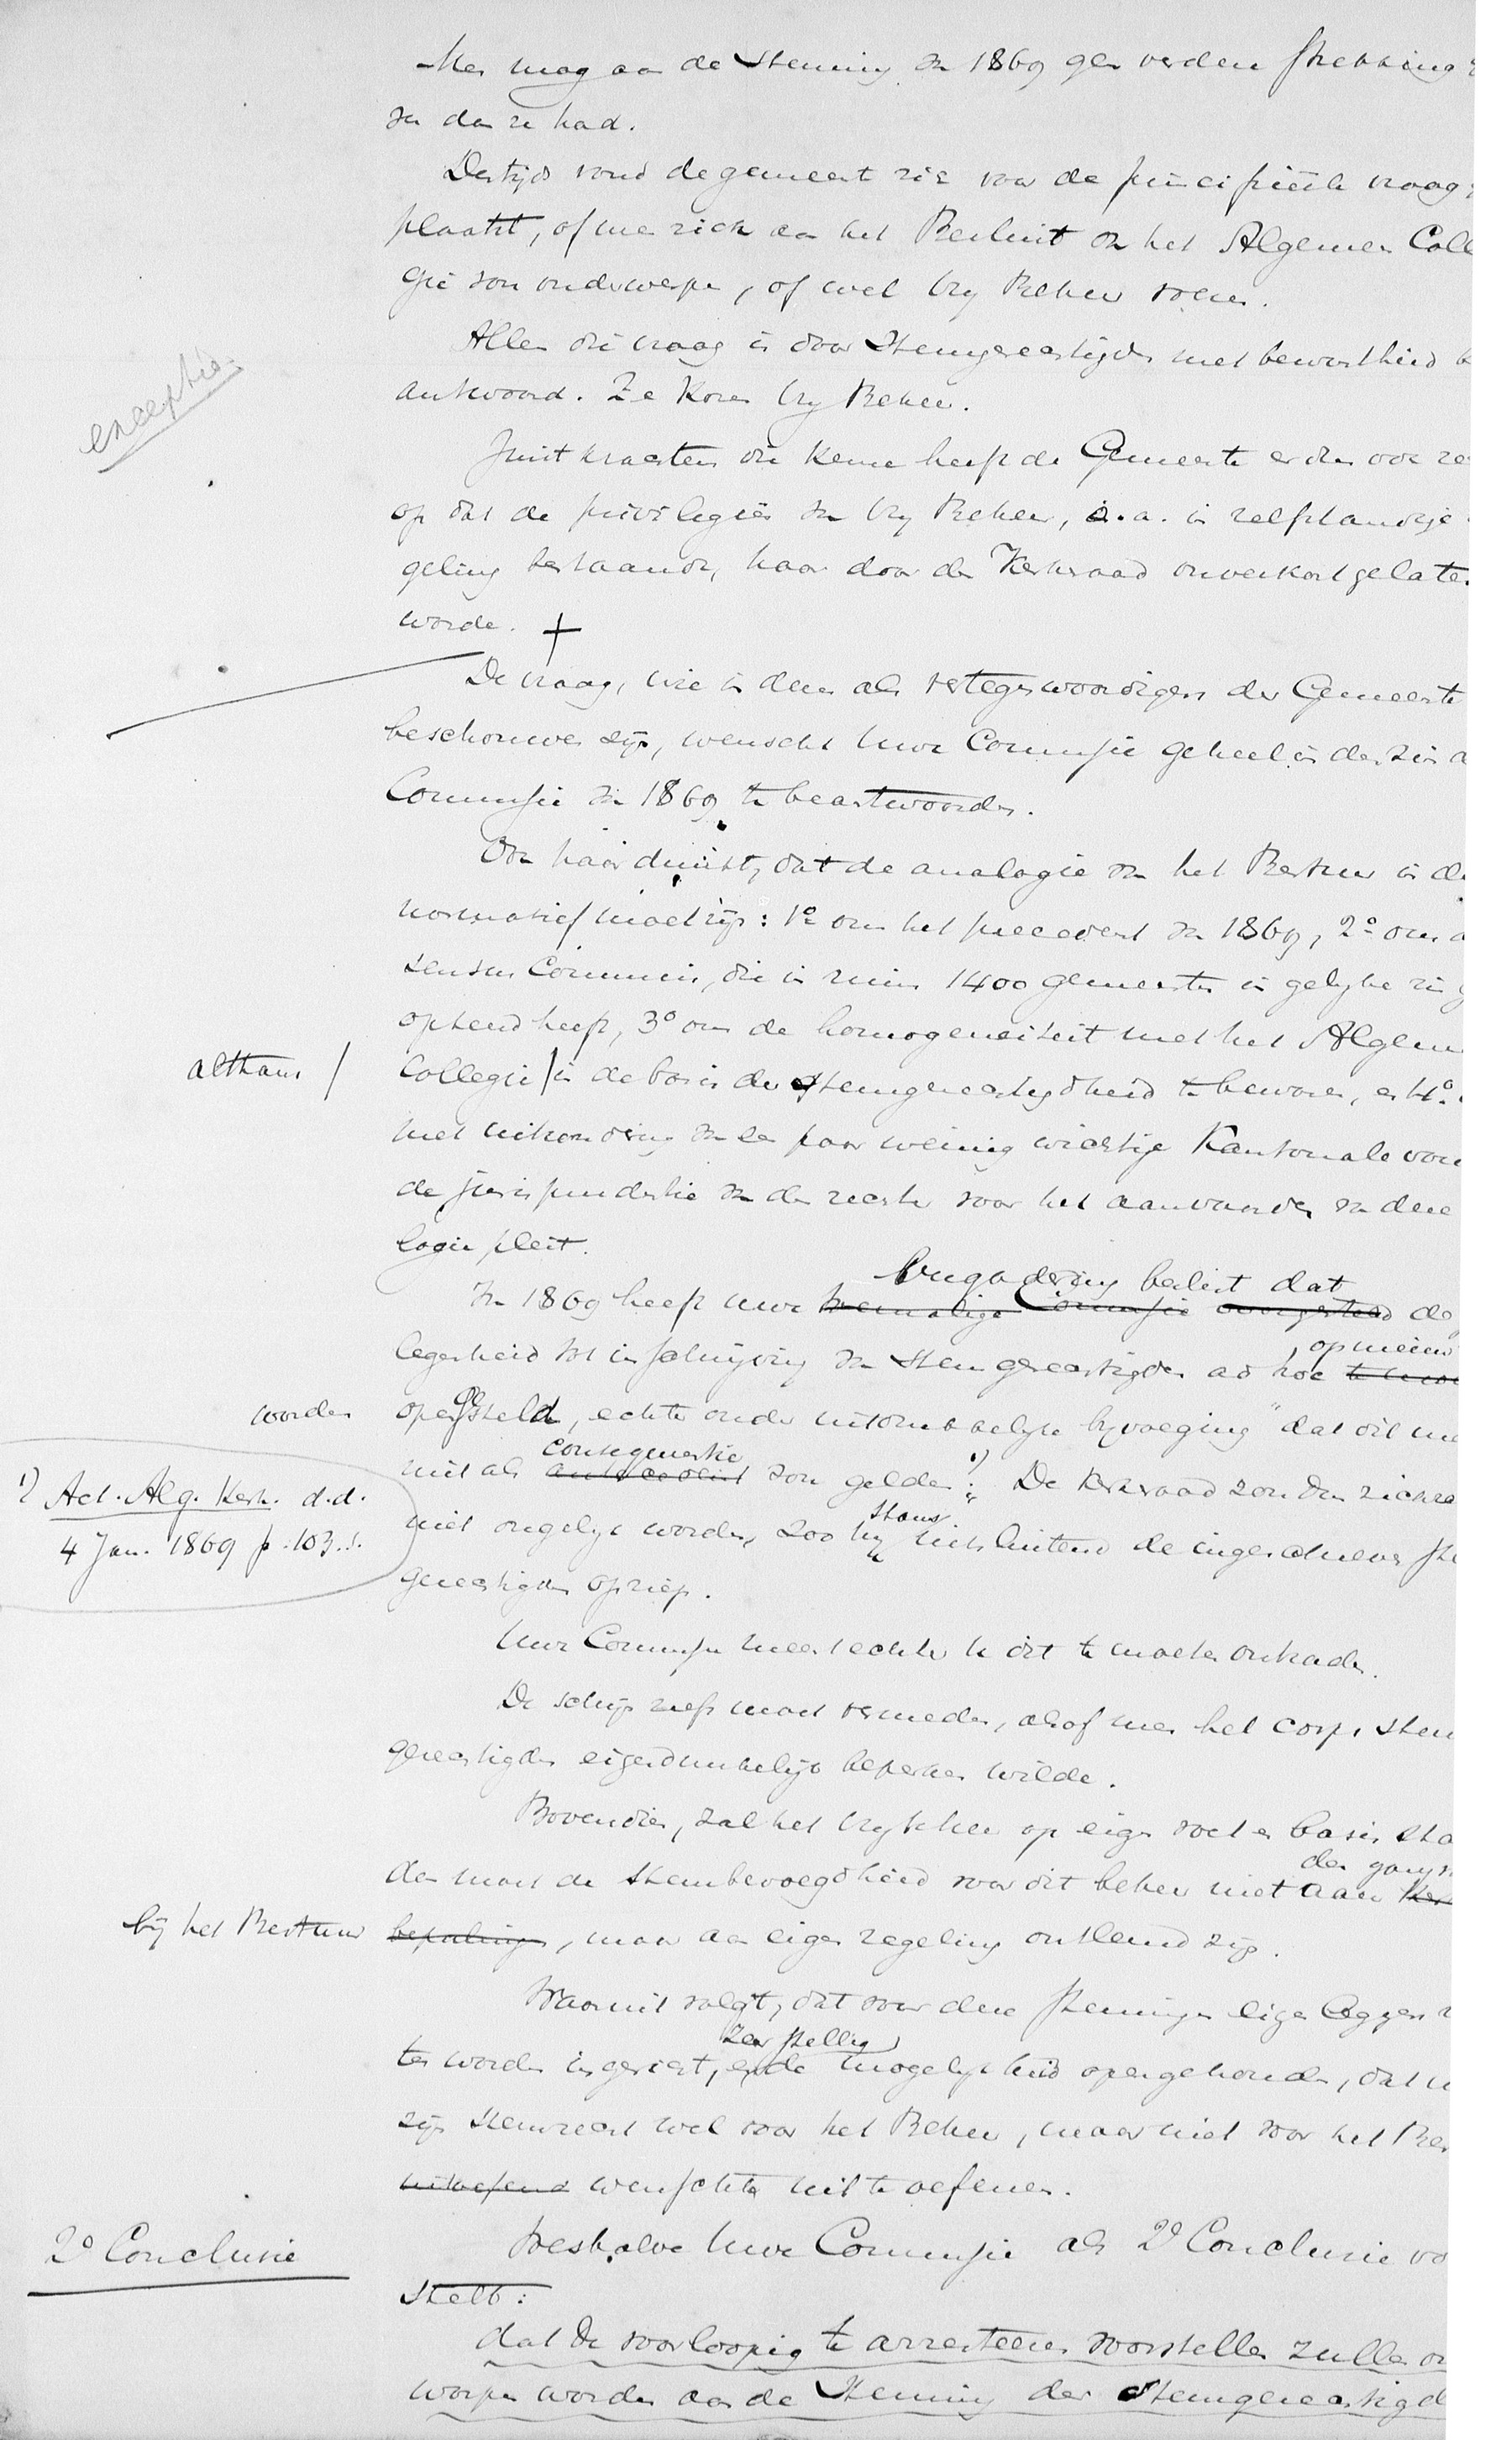 Men mag aan de Stemming van 1869 geen verdere strekking
dan dan ze had.
Destijds vond de gemeente zich voor de principieele vraag
plaatst, of men zich aan het Besluit van het Algemeen Coll
gie zou onderwerpen, of wel vrij Beheer
Alleen die vraag is door Stemgerechtigden met bewustheid b
antwoord. Ze koren vrij Beheer.
Juist krachtens die keuze heeft de Gemeente er dan ook re
op dat de privilegiën van vrij Beheer, o.a. in zelfstandige
geling bestaande, haar door den Kerkeraad onverkort gelaten
worde. +
exceptie.
De vraag, wie in deze als vertegenwoordigers der Gemeente
beschouwen zijn, wenscht Uwe Commissie geheel in den zin d
Commissie van 1869 te beantwoorden.
Ook haar dunkt, dat de analogie van het Bestuur in de
normatief moet zijn: 1o om het precedent van 1869, 2o om d
sensus Communis, die in ruim 1400 gemeenten in gelijken zin g
opteerd heeft, 3o om de homogeneiteit met het Algem
althans / Collegie / in de basis der Stemgerechtigdheid te bewaren, en 4o
met uitzondering van een paar weinig wichtige Kantonale von
de jurisprudentie van den rechter voor het aanvaarden van deze
logie pleit.
Vergadering beslist dat
In 1869 heeft uwe toenmalige Commissie voorgesteld de
legenheid tot inschrijving van Stemgerechtigden ad hoc
opnieuw
worden opengesteld, echter onder uitdrukkelijke bijvoeging "dat dit
consequentie
niet als antecedent zou gelden". 1) De Kerkeraad zou dan zich
1) Act. Alg. Kerk. d.d.
4 Jan. 1869 p. 103.
thans
niet ongelijk worden, zoo hij uitsluitend de ingeschreven st
gerechtigden opriep.
Uwe Commissie meent echter u dit te moeten ontraden.
De schijn zelfs moet vermeden, alsof men het corps stem
gerechtigden eigendunkelijk beperken wilde.
Bovendien, zal het vrij beheer op eigen voet en basis sta
der gang
dan moet de Stembevoegdheid voor dit beheer niet aan
bij het Bestuur bepalingen, maar aan eigen regeling ontleend zijn.
Waaruit volgt, dat voor deze stemmingen eigen leggers
Zeer stellig
ten worden ingericht, en de mogelijkheid opengehouden, dat
zijn stemrecht wel voor het Beheer, maar niet voor het Bes
uitoefend wenschte uit te oefenen.
2o Conclusie
Weshalve Uwe Commissie als 2o Conclusie vo
stelt:
dat de voorloopig te arresteeren voorstellen zullen on
worpen worden aan de Stemming der Stemgerechtigd